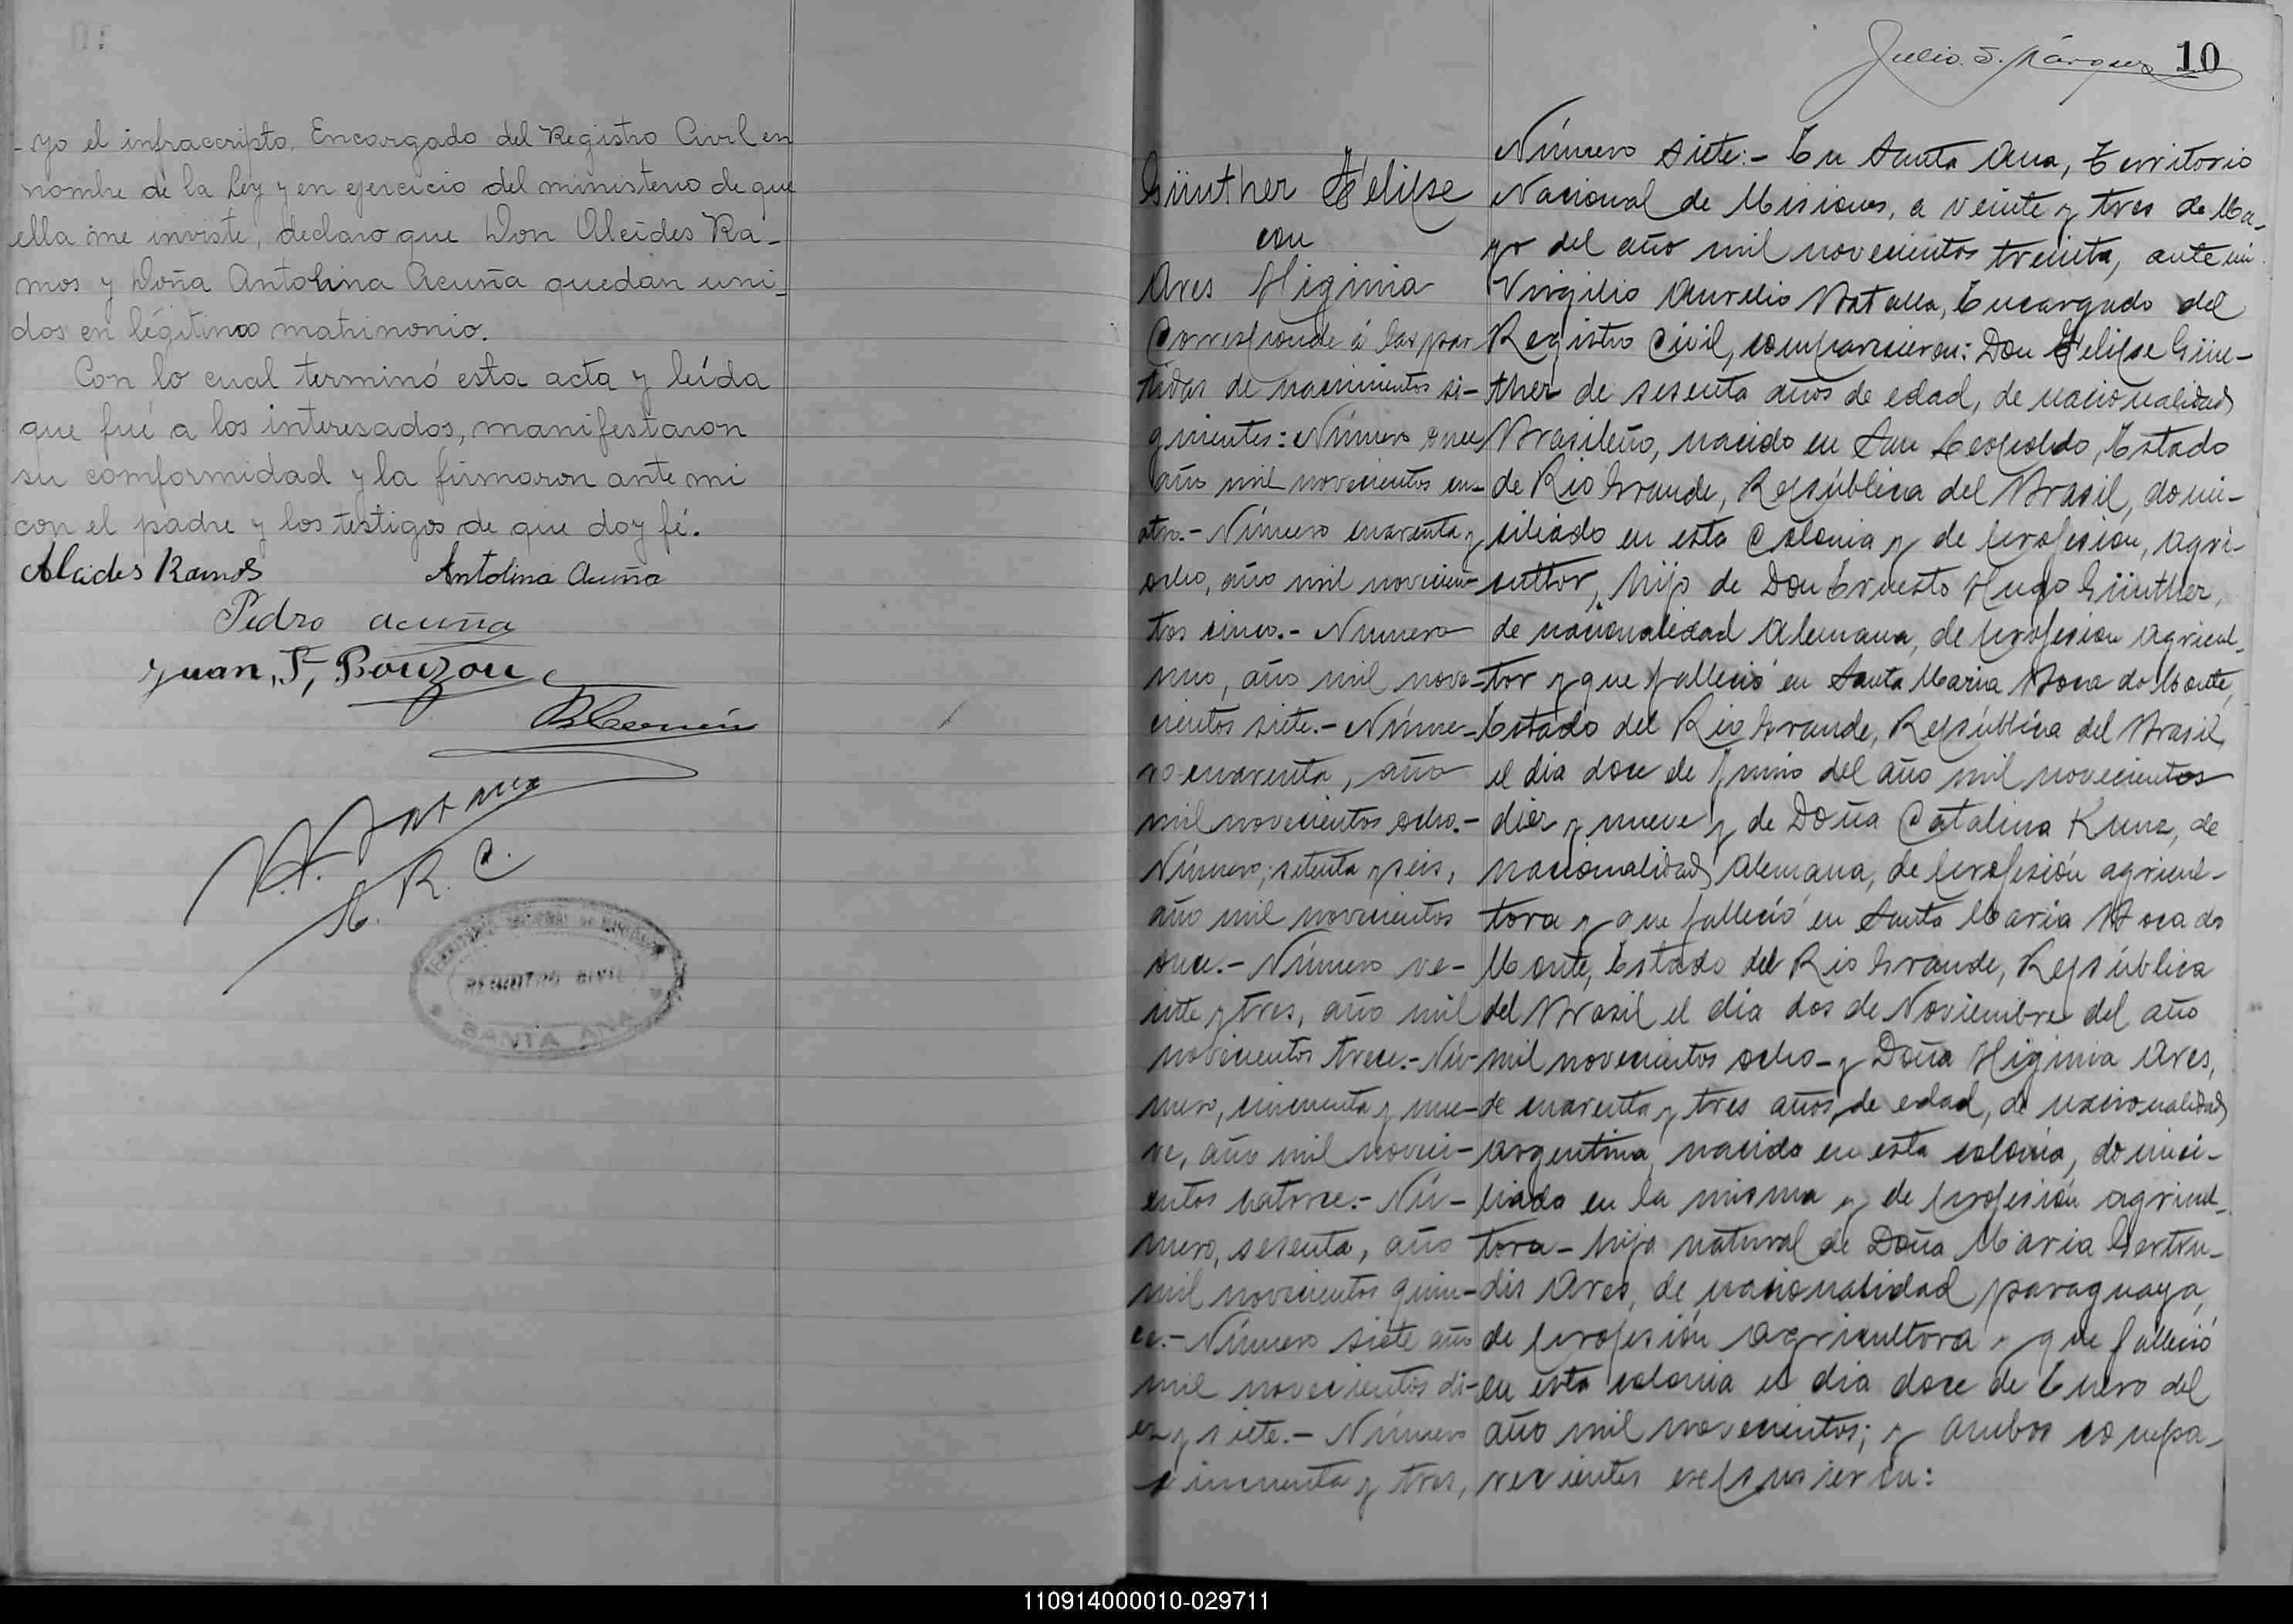 - yo el infraccripto, Encargado del Registro Civil en
nombre de la Ley y en ejercicio del ministerio de que
ella me inviste, declaro que Don Alcides Ra-
mos y Doña Antolina Acuña quedan uni-
dos en légitimo matrimonio.
Con lo cual terminó esta acta y leída
que fué a los interesados, manifestaron
su comformidad y la firmaron ante mi
con el padre y los testigos de que doy fé.
Alcides Ramos Antolina Acuña
Pedro acuña
Juan, F, Bouzon
E. R. C.
REGISTRO CIVIL
SANTA ANA
Julio S. Márquez 10
Günther Felipe
con
Ares Higinia
Corresponde á las par
tidas de nacimientos si-
guientes: Número once
año mil novecientos cu-
atro.- Número cuarenta y
ocho, año mil novecien-
tos cinco.- Número
uno, año mil nove-
cientos siete.- Núme-
ro cuarenta, año
mil novecientos ocho.-
Número, setenta y seis,
año mil novecientos
once.- Número ve-
inte y tres, año mil
novecientos trece.- Nú-
mero, cincuenta y nue-
ve, año mil noveci-
entos catorce.- Nú-
mero, sesenta, año
mil novecientos quin-
ce.- Número siete año
mil novecientos di-
ez y siete.- Número
cincuenta y tres,
Número siete:- En Santa Ana, Territorio
Nacional de Misiones, a veinte y tres de Ma-
yo del año mil novecientos treinta, ante mi
Virgilio Aurelio Batalla, Encargado del
Registro Civil, comparecieron: Don Felipe Gün-
ther de sesenta años de edad, de nacionalidad
Brasileño, nacido en San Leopoldo, Estado
de Rio Grande, República del Brasil, domi-
ciliado en esta Colonia y de profesión, agri-
cultor, hijo de Don Ernesto Hugo Günther,
de nacionalidad Alemana, de profesion agricul-
tor y que falleció en Santa Maria Boca do Monte,
Estado del Rio Grande, República del Brasil,
el dia doce de Junio del año mil novecientos
diez y nueve y de Doña Catalina Kunz, de
nacionalidad Alemana, de profesión agricul-
tora y que falleció en Santa Maria Boca do
Monte, Estado del Rio Grande, República
del Brasil el dia dos de Noviembre del año
mil novecientos ocho - y Doña Higinia Ares,
de cuarenta y tres años de edad, de nacionalidad
argentina, nacida en esta colonia, domici-
liada en la misma y de profesión agricul-
tora - hija natural de Doña Maria Gertru-
dis Ares, de nacionalidad paraguaya,
de profesión agricultora y que falleció
en esta colonia el dia doce de Enero del
año mil novecientos; y ambos compa-
recientes expusieron:
110914000010-029711